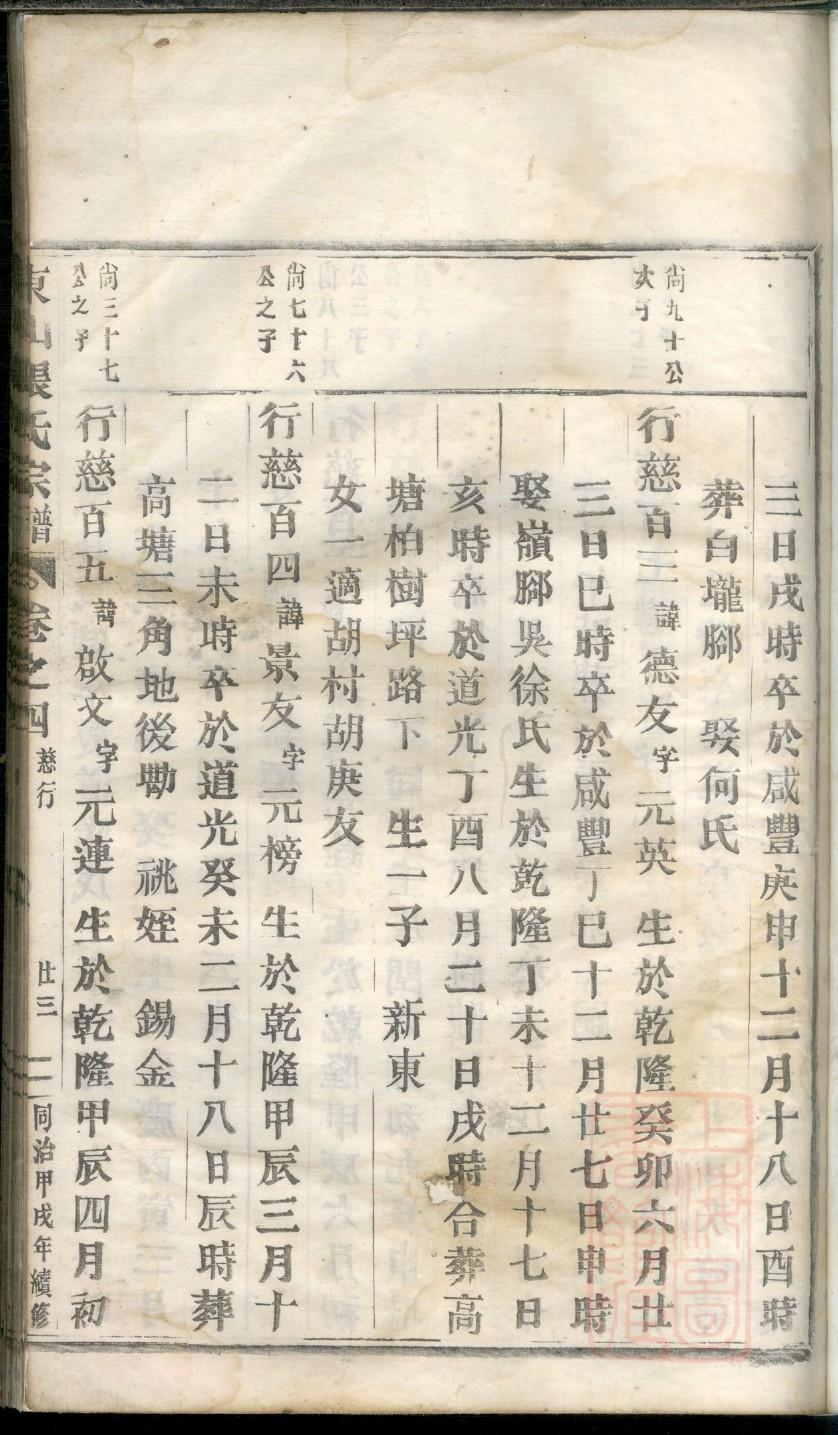 三日戌時卒於咸豐庚申十二月十八日酉時
葬白壠腳 娶何氏
尙九十公
次子
行慈百三 諱 德友 字 元英 生於乾隆癸卯六月廿
三日巳時卒於咸豐丁巳十二月廿七日申時
娶嶺腳吳徐氏生於乾隆丁未十二月十七日
亥時卒於道光丁酉八月二十日戌時合葬高
塘柏樹坪路下 生一子 新東
女一適胡村胡庚友
尙七十六
公之子
行慈百四 諱 景友 字 元榜 生於乾隆甲辰三月十
二日未時卒於道光癸未二月十八日辰時葬
高塘三角地後塢 祧姪 錫金
尙三十七
公之子
行慈百五 諱 啟文 字 元連 生於乾隆甲辰四月初
東山張氏宗譜 卷之四 慈行 廿三 同治甲戌年續修